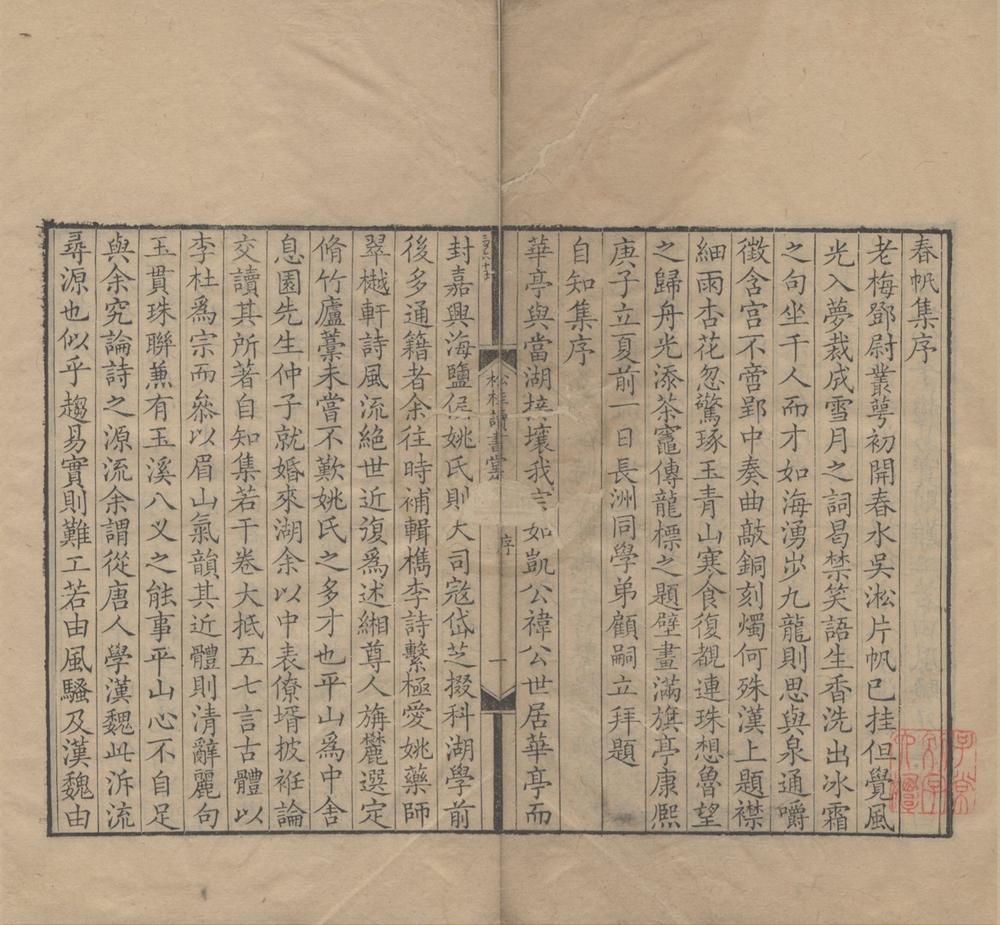 春帆集序
老梅鄧尉叢萼初開春水吳淞片帆已挂但覺風
光入夢裁成雪月之詞曷禁笑語生香洗出冰霜
之句坐千人而才如海湧步九龍則思與泉通嚼
徵含宮不啻郢中奏曲敲銅刻燭何殊漢上題襟
細雨杏花忽驚琢玉青山寒食復覩連珠想魯望
之歸舟光添茶竈傳龍標之題壁畫滿旗亭康熙
庚子立夏前一日長洲同學弟顧嗣立拜題
自知集序
華亭與當湖接壤我宗如凱公禕公世居華亭而
松桂讀書堂
序
一
封嘉興海鹽侯姚氏則大司寇岱芝掇科湖學前
後多通籍者余往時補輯檇李詩繫極愛姚藥師
翠樾軒詩風流絕世近復爲述緗尊人旃麓選定
脩竹廬藁未嘗不歎姚氏之多才也平山爲中舍
息園先生仲子就婚來湖余以中表僚壻披袵論
交讀其所著自知集若干卷大抵五七言古體以
李杜爲宗而叅以眉山氣韻其近體則清辭麗句
玉貫珠聯蒹有玉溪八义之能事平山心不自足
與余究論詩之源流余謂從唐人學漢魏此泝流
尋源也似乎趨易實則難工若由風騷及漢魏由